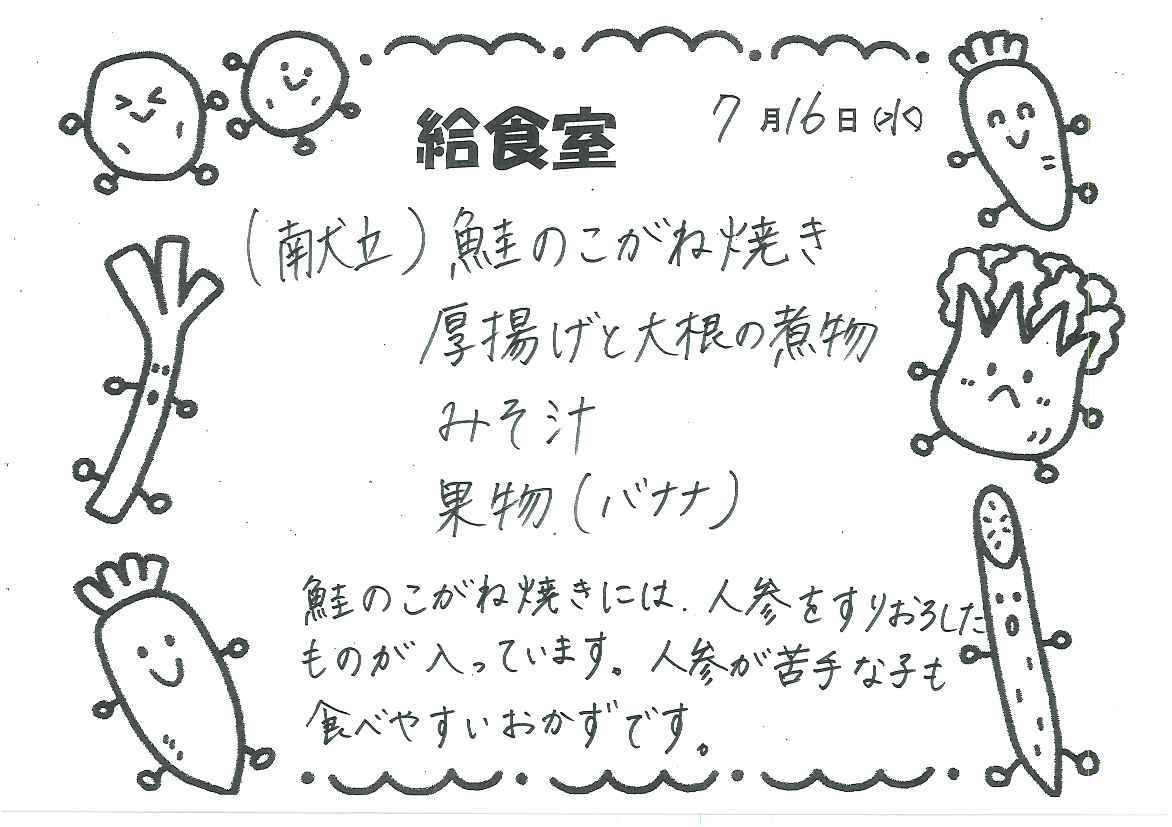 給食室
7月16日(水)
(献立)鮭のこがね焼き
厚揚げと大根の煮物
みそ汁
果物(バナナ)
鮭のこがね焼きには、人参をすりおろした
ものが入っています。人参が苦手な子も
食べやすいおかずです。